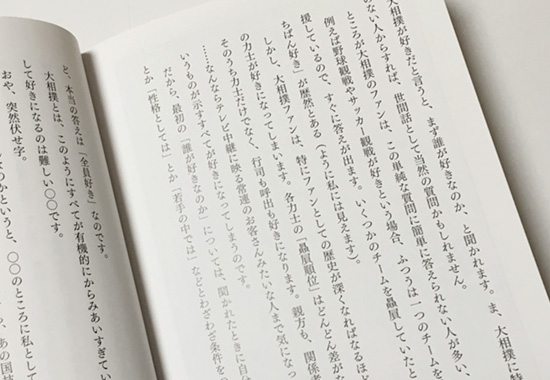 大相撲が好きだと言うと、まず誰が好きなのか、と聞かれます。ま、大相撲に特
のない人からすれば、世間話として当然の質問かもしれません。
ところが大相撲のファンは、この単純な質問に簡単に答えられない人が多い、
例えば野球観戦やサッカー観戦が好きという場合、ふつうは一つのチームを
援しているので、すぐに答えが出ます。いくつかのチームを贔屓していたと
ちばん好き」が歴然とある(ように私には見えます)。
しかし、大相撲ファンは、特にファンとしての歴史が深くなればなるほど
の力士が好きになってしまいます。各力士の「贔屓順位」はどんどん差が
そのうち力士だけでなく、行司も呼出も好きになります。親方も、関係者
……なんならテレビ中継に映る常連のお客さんみたいな人まで気になっ
いうものが示すすべてが好きになってしまうのです。
だから、最初の「誰が好きなのか」については、聞かれたときに自分
とか「性格としては」とか「若手の中では」などとわざわざ条件を
と、本当の答えは「全員好き」なのです。
大相撲とは、このようにすべてが有機的にからみあいすぎてい
して好きになるのは難しい〇〇です。
おや、突然伏せ字。
のかというと、〇〇のところに私として
あの国技